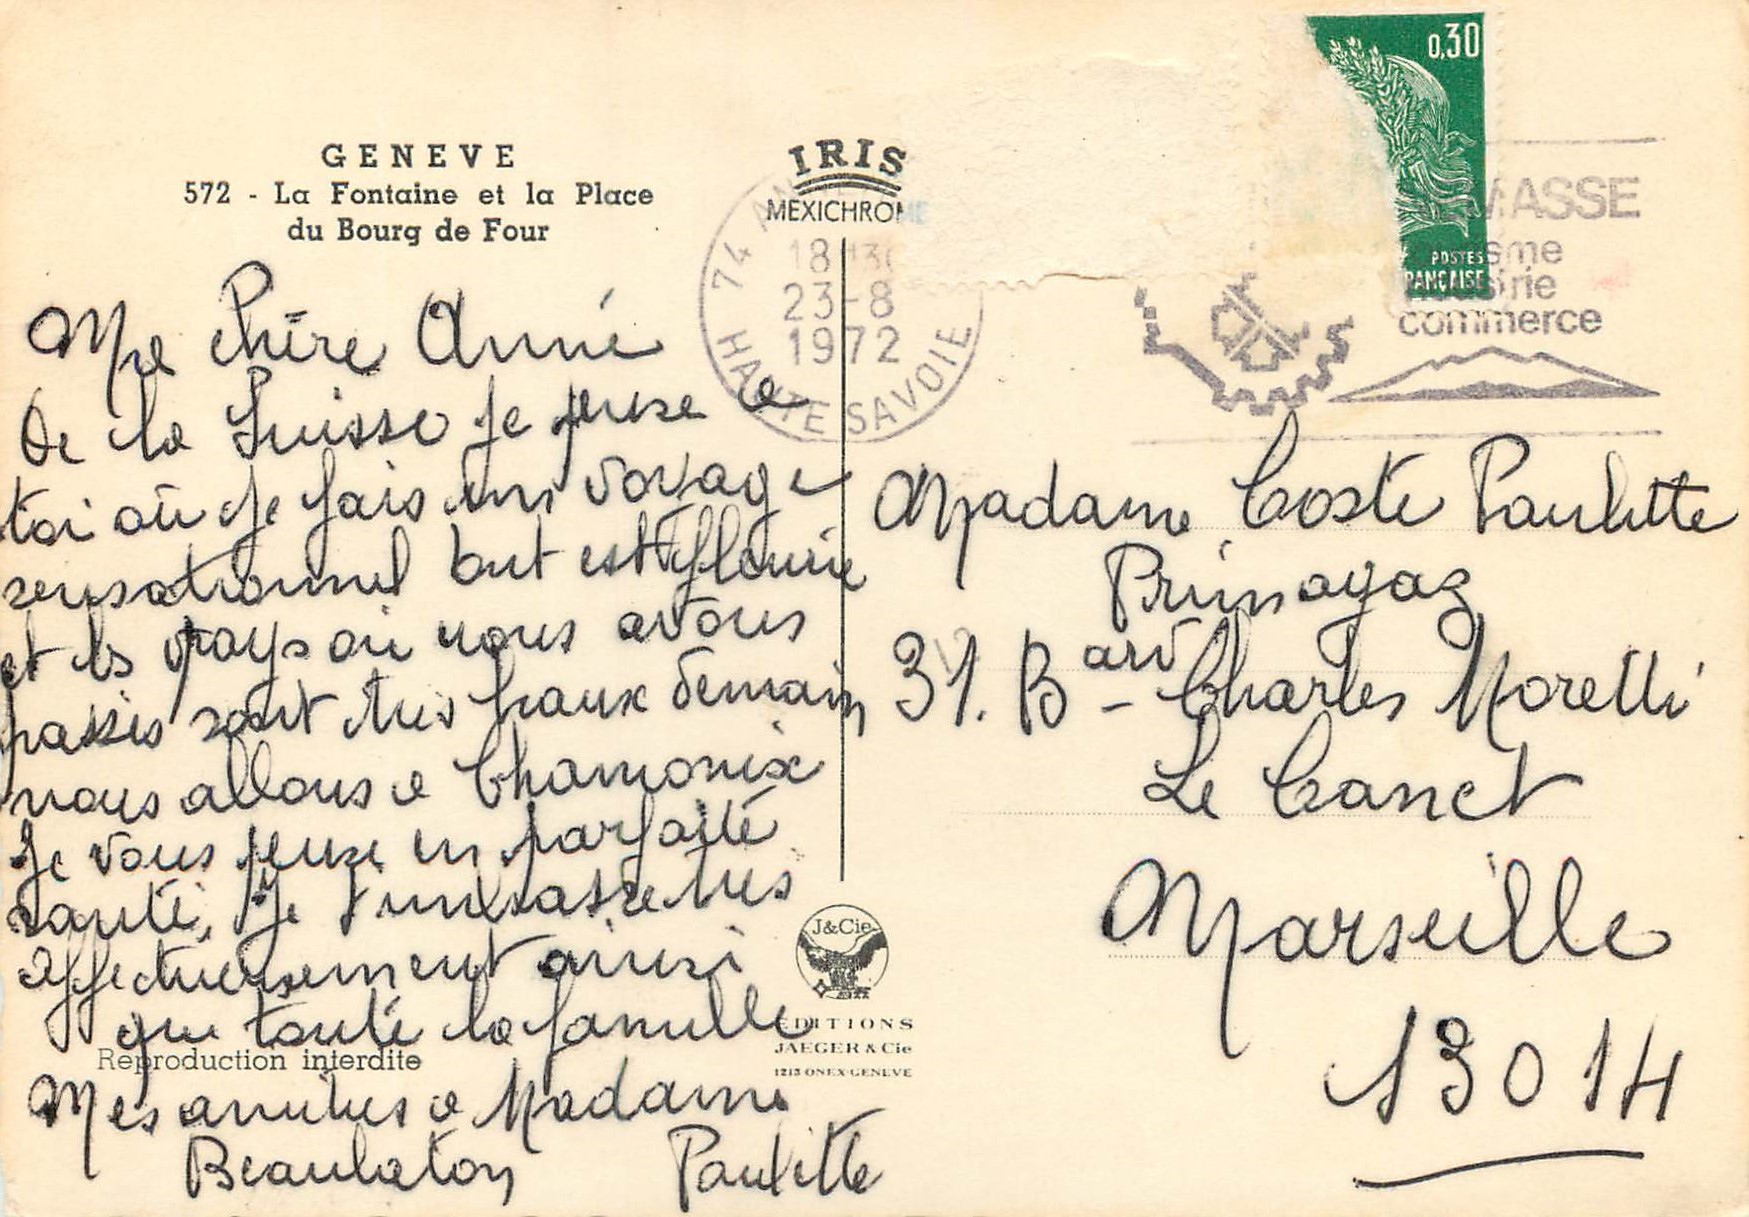 GENEVE
572 - La Fontaine et la Place
du Bourg de Four
IRIS
MEXICHROME
74 AN
18 H 30
23-8
1972
HAUTE SAVOIE
0,30
POSTES
FRANÇAISE
MASSE
isme
strie
commerce
Ma Chère Annie
De la Suisse je pense a
toi où je fais un voyage
sensationnel tout est fleurie
et les pays où nous avons
passés sont très beaux demain
nous allons a Chamonix
Je vous pense en parfaite
santé, Je t'embrasse très
affectueusement ainsi
que toute la famille
Mes amitiés a Madame
Beaulaton Paulette
Madame Coste Paulette
31. Bard - Charles Moretti
Le Canet
Marseille
13014
J&Cie
EDITIONS
JAEGER & Cie
1213 ONEX-GENEVE
Reproduction interdite